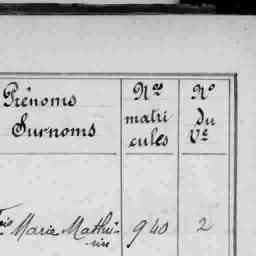 Prénoms
Surnoms
Nos
matri
cules
No
du
Ve
Fois Marie Mathu-
rine
940
2